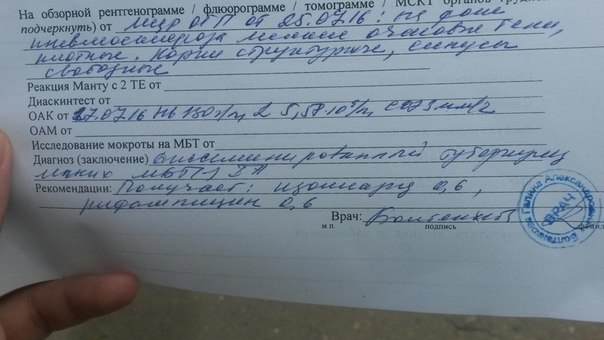 На обзорной рентгенограмме / флюорограмме / томограмме / МСКТ органов
подчеркнуть) от от 25.07.16: на фоне
пневмосклероза мелкие очаговые тени,
плотные. Корни структурные, синусы
свободные
Реакция Манту с 2 ТЕ от
Диаскинтест от
ОАК от 27.07.16 Hb 130 г/л,
ОАМ от
Исследование мокроты на МБТ от
Диагноз (заключение) туберкулез
легких МБТ(-)
Рекомендации: Получает: 0,6,
рифампицин 0,6
Врач:
м.п подпись фамил
Галина Александровна
ВРАЧ